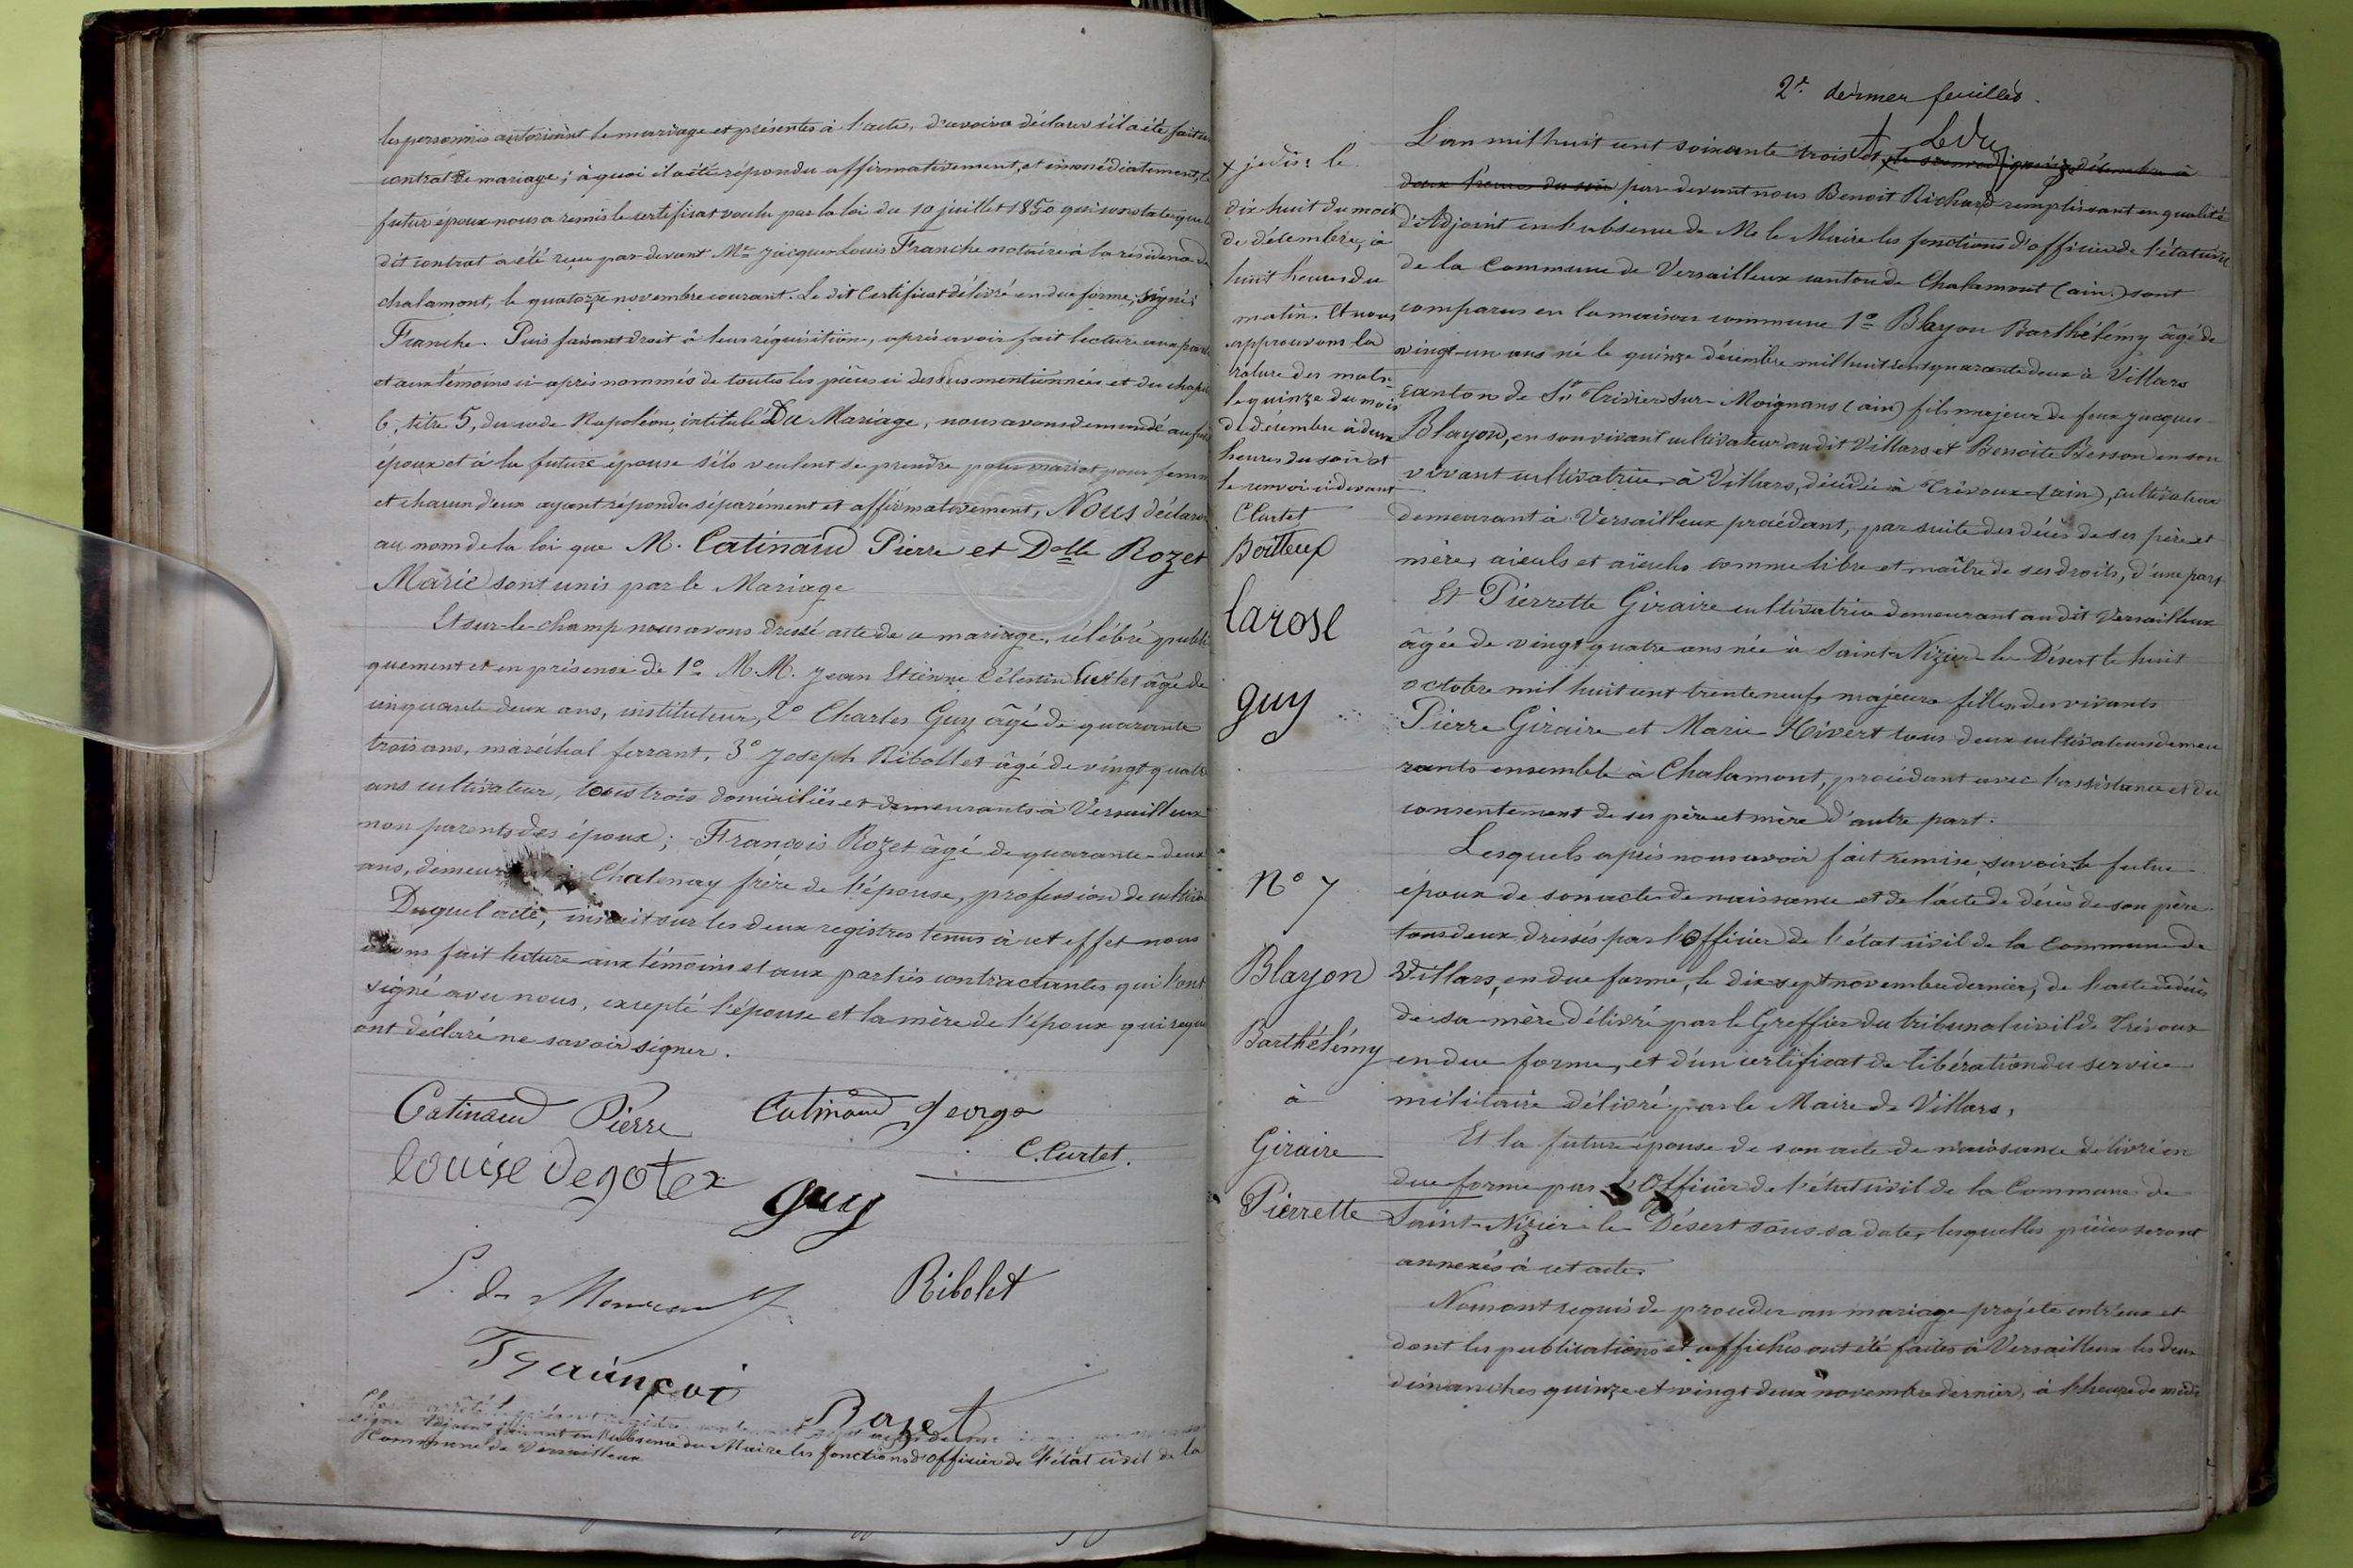 les personnes autorisant le mariage et présentes à l'acte, d'avoir à déclarer s'il a été fait un
contrat de mariage ; à quoi il a été répondu affirmativement, et immédiatement, le
futur époux nous a remis le certificat voulu par la loi du 10 juillet 1850 qui constate que le
dit contrat a été reçu par devant Me Jacques Louis Franche notaire à la résidence de
chalamont, le quatorze novembre courant. Le dit Certificat délivré en due forme, signé:
Franche. Puis faisant droit à leur réquisition, après avoir fait lecture aux parties
et aux témoins ci-après nommés de toutes les pièces ci dessus mentionnées et du chapitre
6, titre 5, du code Napoléon intitulé Du Mariage, nous avons demandé au futur
époux et à la future épouse s'ils veulent se prendre pour mari et pour femme
et chacun d'eux ayant répondu séparément et affirmativement, Nous déclarons
au nom de la loi que M. Catinaud Pierre et Delle Rozet
Marie sont unis par le Mariage
Et sur-le-champ nous avons dressé acte de ce mariage, célébré publi
quement et en présence de 1° M.M. Jean Etienne Célestin Curtet âgé de
cinquante deux ans, instituteur, 2° Charles Guy âgé de quarante
trois ans, maréchal ferrant, 3° Joseph Ribollet âgé de vingt quatre
ans cultivateur, tous trois domiciliés et demeurants à Versailleux
non parents des époux ; François Rozet âgé de quarante-deux
ans, Chatenay frère de l'épouse, profession de cultiva
Duquel acte, inscrit sur les deux registres tenus à cet effet nous
avons fait lecture aux témoins et aux parties contractantes qui l'ont
signé avec nous, excepté l'épouse et la mère de l'époux qui requis
ont déclaré ne savoir signer.
Catinaud Pierre Catinaud George
C. Curtet.
louise degotex
guy
P. de
Ribolet
françoi
Rozet
signé Adjoint faisant en l'absence du Maire les fonctions d'officier de l'état civil de la
Commune de Versailleux
2e dernier feuillet.
L'an mil huit cent soixante trois et le quinze décembre à
deux heures du soir par devant nous Benoit Richard remplissant en qualité
d'Adjoint en l'absence de Mr le Maire les fonctions d'officier de l'état civil
de la Commune de Versailleux canton de Chalamont (ain) sont
comparus en la maison commune 1° Blayon Barthélémy âgé de
vingt-un ans né le quinze décembre mil huit cent quarante deux à Villars
canton de St Trivier sur-Moignans (ain) fils majeur de feux Jacques
Blayon, en son vivant cultivateur audit Villars et Benoite Besson en son
vivant cultivatrice à Villars, décédée à Trévoux (ain), cultivateur
demeurant à Versailleux procédant, par suite des décès de ses père et
mère, aieuls et aïeules comme libre et maître de ses droits, d'une part
Et Pierrette Giraire cultivatrice demeurant au dit Versailleux
âgée de vingt quatre ans née à Saint-Nizier-le-Désert le huit
octobre mil huit cent trente neuf, majeure fille des vivants
Pierre Giraire et Marie Hivert tous deux cultivateurs demeu
rants ensemble à Chalamont, procédant avec l'assistance et du
consentement de ses père et mère d'autre part.
Lesquels après nous avoir fait remise, savoir le futur
époux de son acte de naissance et de l'acte de décès de son père
tous deux dressés par l'Officier de l'état civil de la Commune de
Villars, en due forme, le dix-sept novembre dernier, de l'acte de décès
de sa mère délivré par le Greffier du tribunal civil de Trévoux
en due forme, et d'un certificat de libération du service
militaire délivré par le Maire de Villars,
Et la future épouse de son acte de naissance délivré en
due forme par l'Officier de l'état civil de la Commune de
Saint-Nizier-le-Désert sous sa date, lesquelles pièces seront
annexés à cet acte.
Nous ont requis de procéder au mariage projeté entr'eux et
dont les publications et affiches ont été faites à Versailleux les deux
dimanches quinze et vingt deux novembre dernier, à l'heure de midi
x jeudi: le
dix huit du mois
de décembre, à
huit heures du
matin. Et nous
approuvons la
rature des mots:
le quinze du mois
de décembre à deux
heures du soir et
le renvoi ci devant
C Curtet
Boitteux
larose
guy
N° 7
Blayon
Barthélémy
à
Giraire
Pierrette